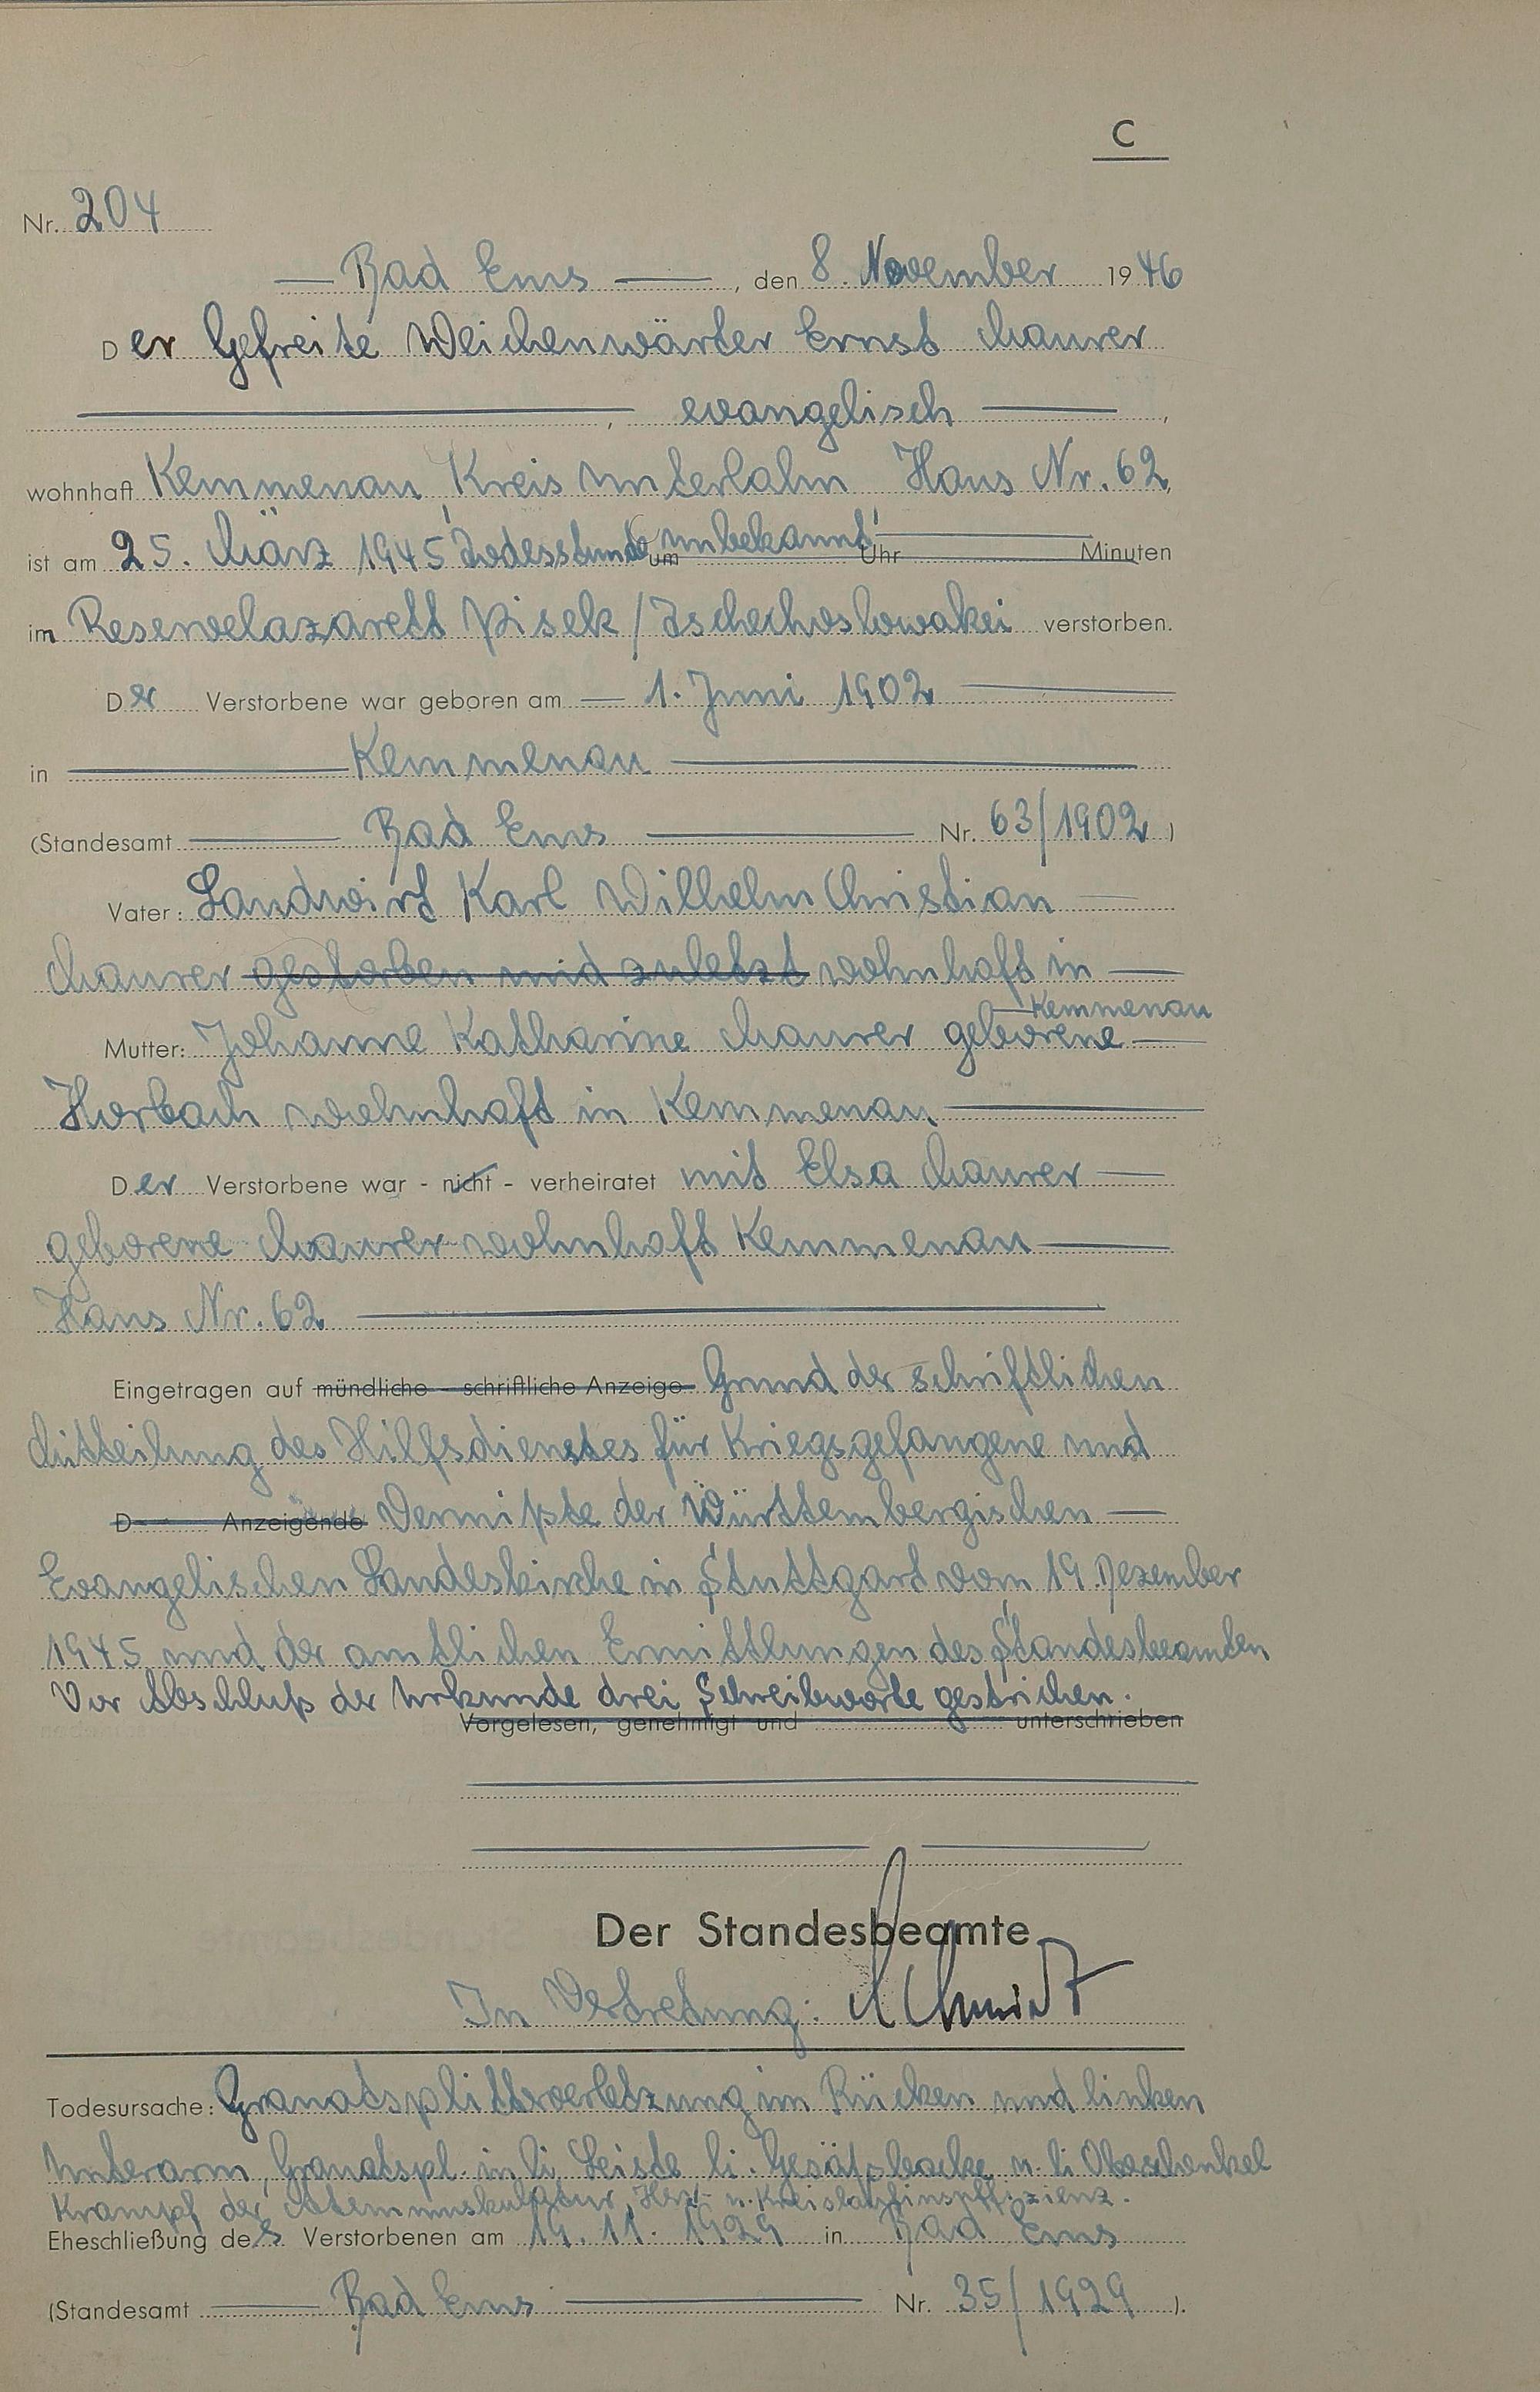 C
Nr. 204
Bad Ems, den 8. November 1946
Der Gefreite Weichenwärter Ernst Maurer
, evangelisch ,
wohnhaft Kemmenau, Kreis Unterlahn Haus Nr. 62,
ist am 25. März 1945 Todesstunde um unbekannt Uhr Minuten
im Reservelazarett Pisek / Tschechoslowakei verstorben.
Der Verstorbene war geboren am 1. Juni 1902
in Kemmenau
(Standesamt Bad Ems Nr. 63/1902 )
Vater: Landwirt Karl Wilhelm Christian
Maurer gestorben und zuletzt wohnhaft in
Kemmenau
Mutter: Johanne Katharine Maurer geborene
Horbach wohnhaft in Kemmenau
Der Verstorbene war - nicht - verheiratet mit Elsa Maurer
geborene Maurer wohnhaft Kemmenau
Haus Nr. 62
Eingetragen auf mündliche - schriftliche Anzeige Grund der schriftlichen
Mitteilung des Hilfsdienstes für Kriegsgefangene und
D Anzeigende Vermißte der Württembergischen
Evangelischen Landeskirche in Stuttgart vom 19. Dezember
1945 und der amtlichen Ermittlungen des Standesbeamten
Vor Abschluß der Urkunde drei Schreibworte gestrichen.
Vorgelesen, genehmigt und unterschrieben
Der Standesbeamte
In Vertretung: Schmidt
Todesursache: Granatsplitterverletzung im Rücken und linken
Unterarm, Granatspl. in li. Leiste li. Gesäßbacke u. li Oberschenkel
Krampf der Atemmuskulatur, Herz- u. Kreislaufinsuffizienz.
Eheschließung des Verstorbenen am 19. 11. 1929 in Bad Ems
(Standesamt Bad Ems Nr. 35/1929 ).